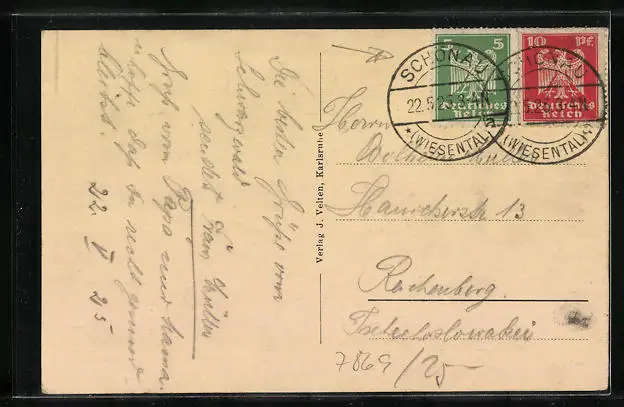 Die besten Grüße vom
Schwarzwald
sendet Frau Müller
Gruß vom Papa und Mama
u. hoffe daß Du recht gesund
bleibst.
22. V 25
Verlag J. Velten, Karlsruhe
5 5
Deutsches
Reich
10 Pf.
Deutsches
Reich
SCHÖNAU
22.5.
(WIESENTAL)
SCHÖNAU
(WIESENTAL)
Herrn
13
Reichenberg
Tschechoslowakei
7869/25-